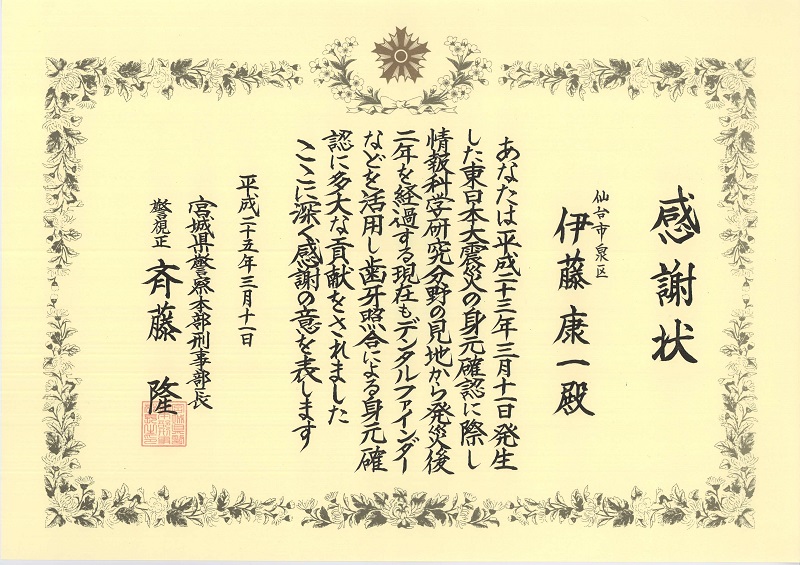 感謝状
仙台市泉区
伊藤康一殿
あなたは平成二十三年三月十一日発生
した東日本大震災の身元確認に際し
情報科学研究分野の見地から発災後
二年を経過する現在もデンタルファインダー
などを活用し歯牙照合による身元確
認に多大な貢献をされました
ここに深く感謝の意を表します
平成二十五年三月十一日
宮城県警察本部刑事部長
警視正 斉藤隆